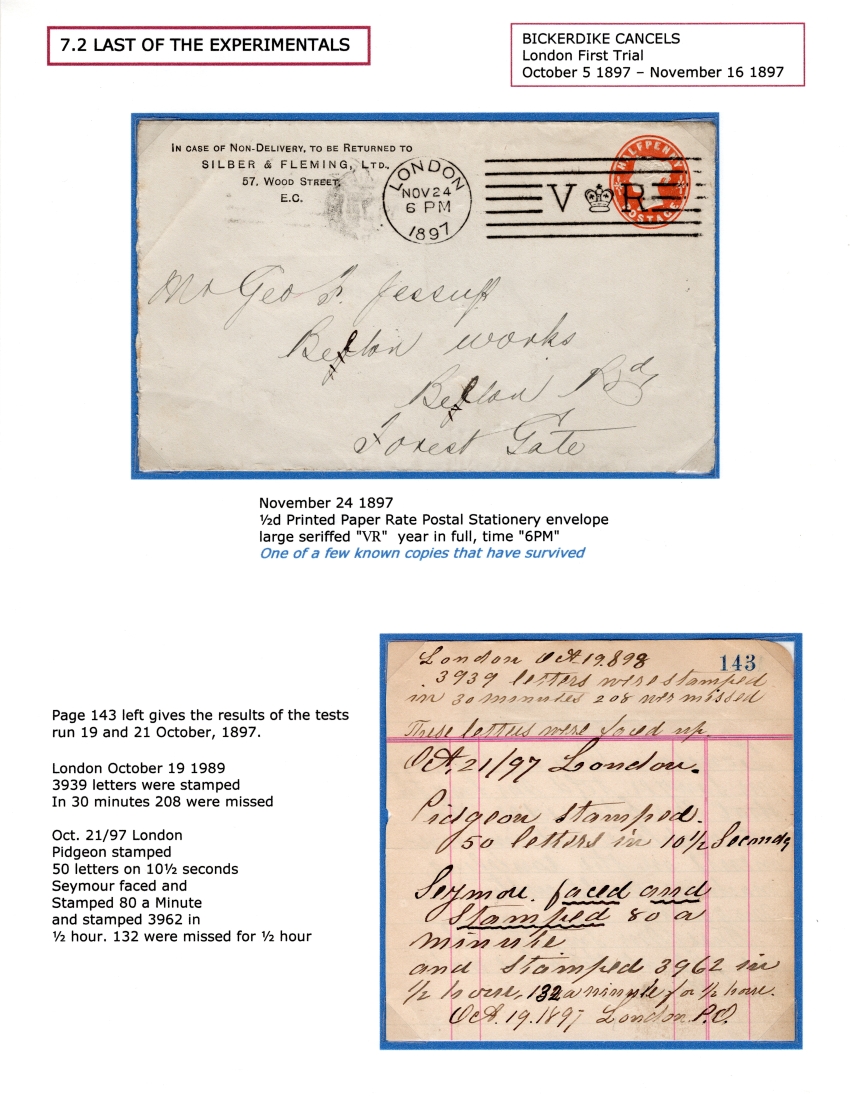 7.2 LAST OF THE EXPERIMENTALS
BICKERDIKE CANCELS
London First Trial
October 5 1897 – November 16 1897
IN CASE OF NON-DELIVERY, TO BE RETURNED TO
SILBER & FLEMING, LTD.,
57, WOOD STREET,
E.C.
LONDON
NOV 24
6 PM
1897
V R
HALFPENNY
POSTAGE
Mr Geo F. Jessup
Belton works
Belton Rd
Forest Gate
November 24 1897
½d Printed Paper Rate Postal Stationery envelope
large seriffed "VR" year in full, time "6PM"
One of a few known copies that have survived
Page 143 left gives the results of the tests
run 19 and 21 October, 1897.
London October 19 1989
3939 letters were stamped
In 30 minutes 208 were missed
Oct. 21/97 London
Pidgeon stamped
50 letters on 10½ seconds
Seymour faced and
Stamped 80 a Minute
and stamped 3962 in
½ hour. 132 were missed for ½ hour
143
London Oct. 19.898
3939 letters were stamped
in 30 minutes 208 wer missed
These letters were faced up
Oct, 21/97 London.
Pidgeon stamped.
50 letters in 10½ Seconds
Seymou. faced and
Stamped 80 a
minute
and stamped 3962 in
½ hour, 132 a minute for ½ hour.
Oct. 19.1897 London P.O.